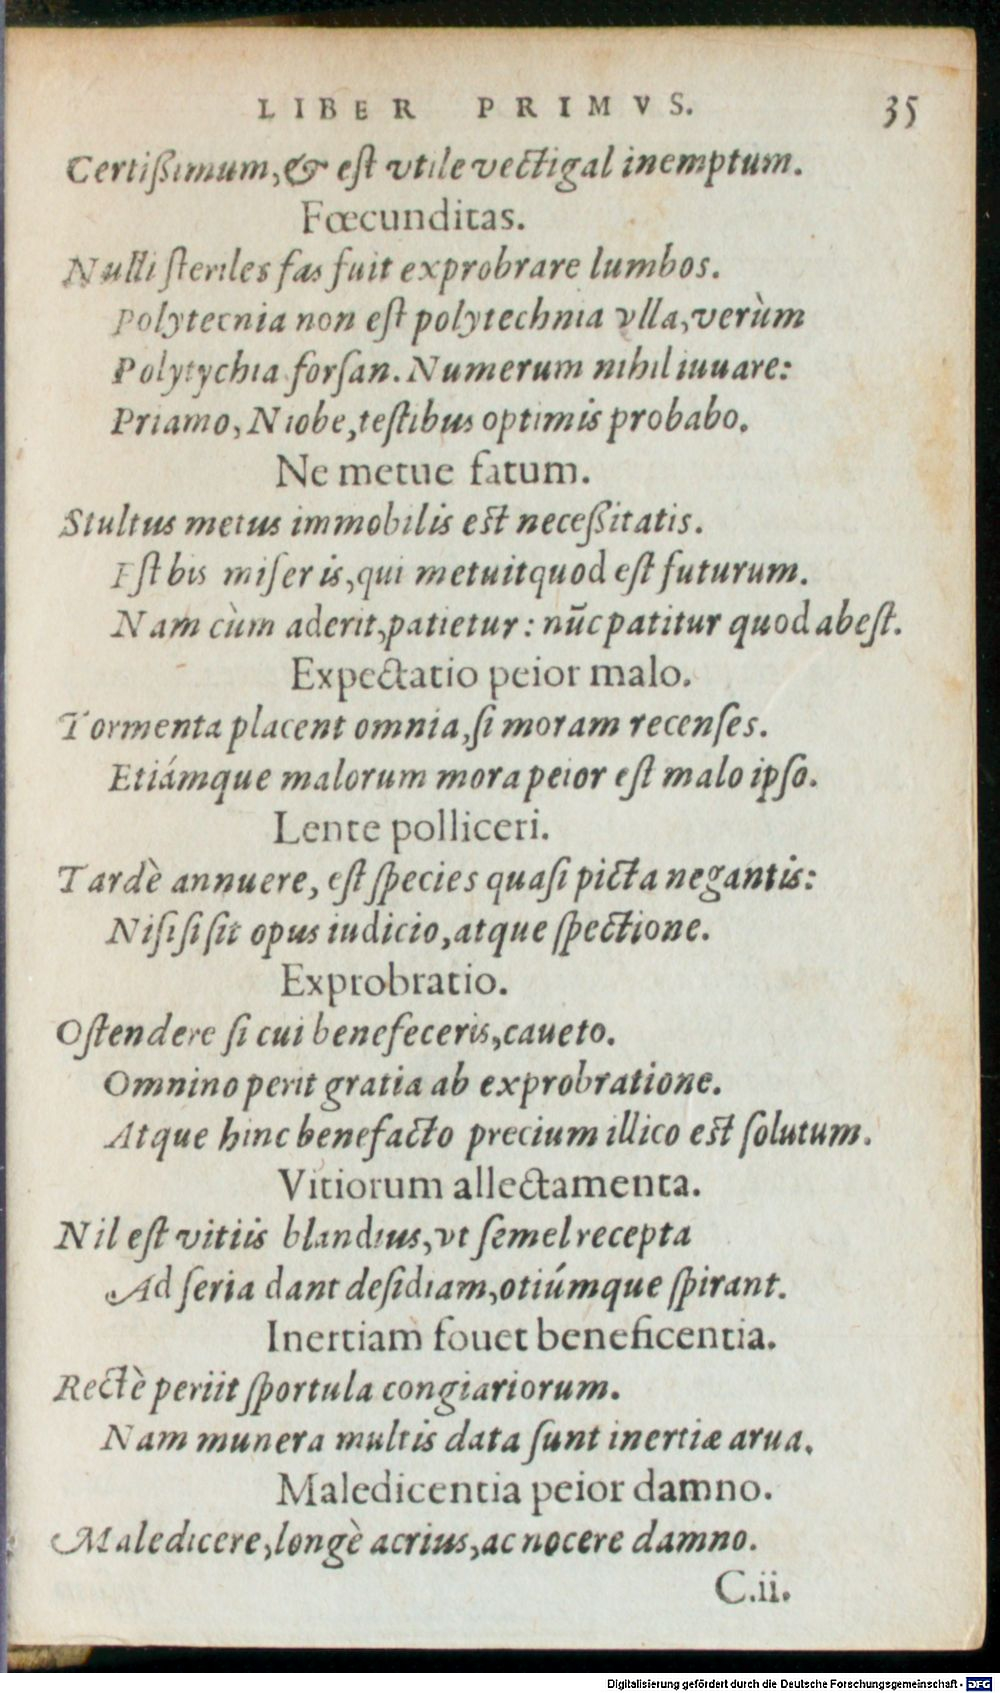 LIBER PRIMVS. 35
Certißimum, & eſt vtile vectigal inemptum.
Fœcunditas.
Nulli ſteriles fas fuit exprobrare lumbos.
Polytecnia non eſt polytechnia vlla, verùm
Polytychia forſan. Numerum nihil iuuare:
Priamo, Niobe, teſtibus optimis probabo.
Ne metue fatum.
Stultus metus immobilis eſt neceßitatis.
Eſt bis miſer is, qui metuit quod eſt futurum.
Nam cùm aderit, patietur: nūc patitur quod abeſt.
Expectatio peior malo.
Tormenta placent omnia, ſi moram recenſes.
Etiámque malorum mora peior eſt malo ipſo.
Lente polliceri.
Tardè annuere, eſt ſpecies quaſi picta negantis:
Niſi ſi ſit opus iudicio, atque ſpectione.
Exprobratio.
Oſtendere ſi cui benefeceris, caueto.
Omnino perit gratia ab exprobratione.
Atque hinc benefacto precium illico eſt ſolutum.
Vitiorum allectamenta.
Nil eſt vitiis blandius, vt ſemel recepta
Ad ſeria dant deſidiam, otiúmque ſpirant.
Inertiam fouet beneficentia.
Rectè periit ſportula congiariorum.
Nam munera multis data ſunt inertiæ arua.
Maledicentia peior damno.
Maledicere, longè acrius, ac nocere damno.
C.ii.
Digitalisierung gefördert durch die Deutsche Forschungsgemeinschaft - DFG